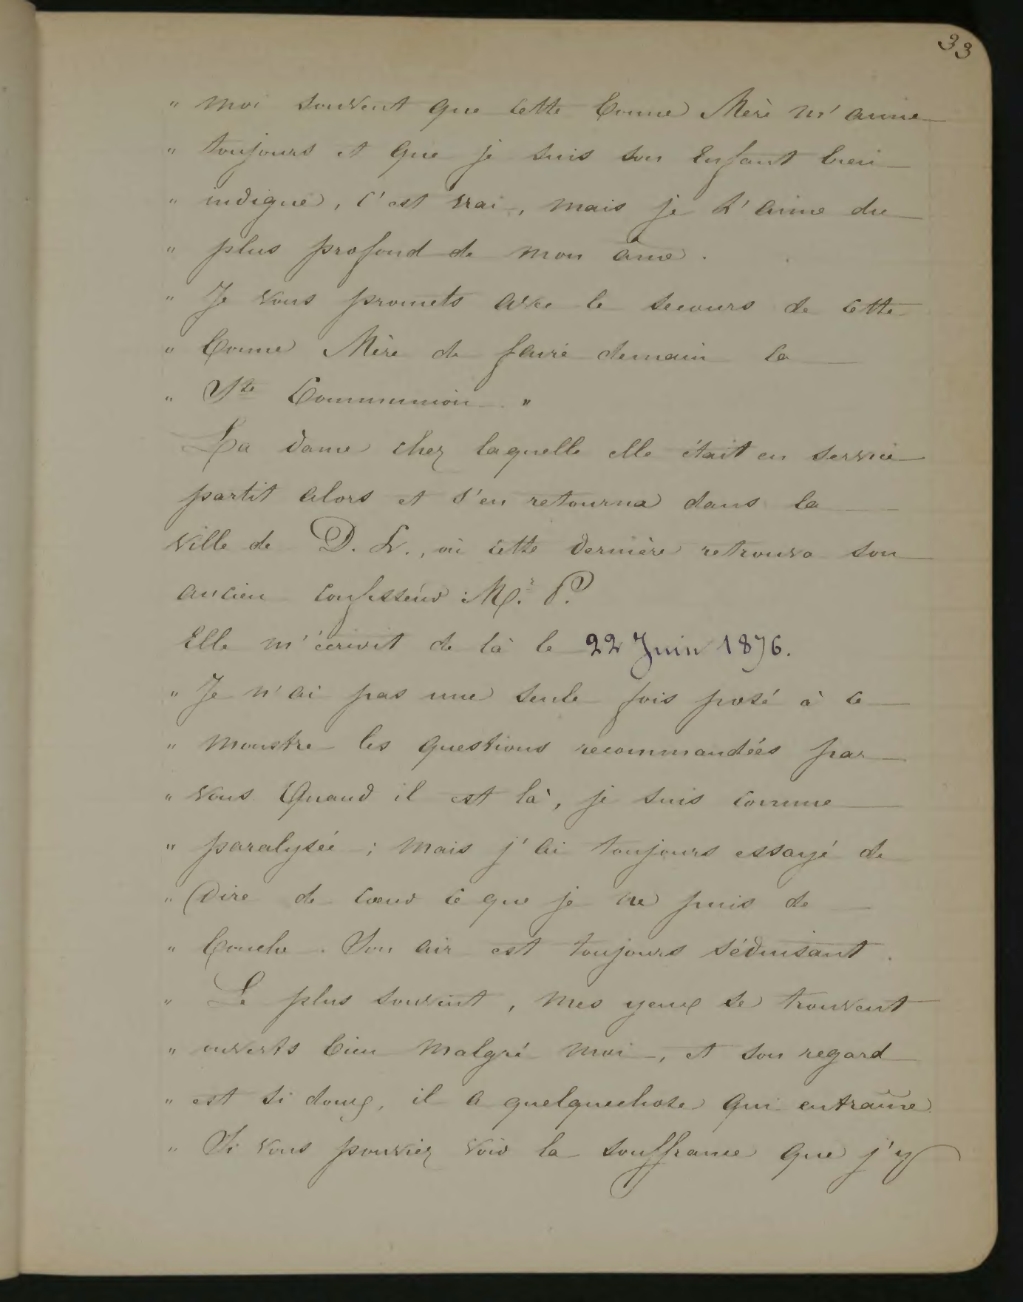 33
" moi souvent que cette bonne Mère m'aime
" toujours et que je suis son enfant bien
" indigne, c'est vrai, mais je l'aime du
" plus profond de mon âme.
" Je vous promets avec le secours de cette
" bonne Mère de faire demain la
" Ste Communion "
La dame chez laquelle elle était en service
partit alors et s'en retourna dans la
ville de D. L., où cette dernière retrouva son
ancien confesseur M. P.
Elle m'écrivit de là le 22 Juin 1876.
" Je n'ai pas une seule fois posé à ce
" monstre les questions recommandées par
" vous Quand il est là, je suis comme
" paralysée ; mais j'ai toujours essayé de
" dire de cœur ce que je ne puis de
" bouche. Son air est toujours séduisant.
" Le plus souvent, mes yeux se trouvent
" ouverts bien malgré moi, et son regard
" est si doux, il a quelquechose qui entraîne
" Si vous pouviez voir la souffrance que j'y